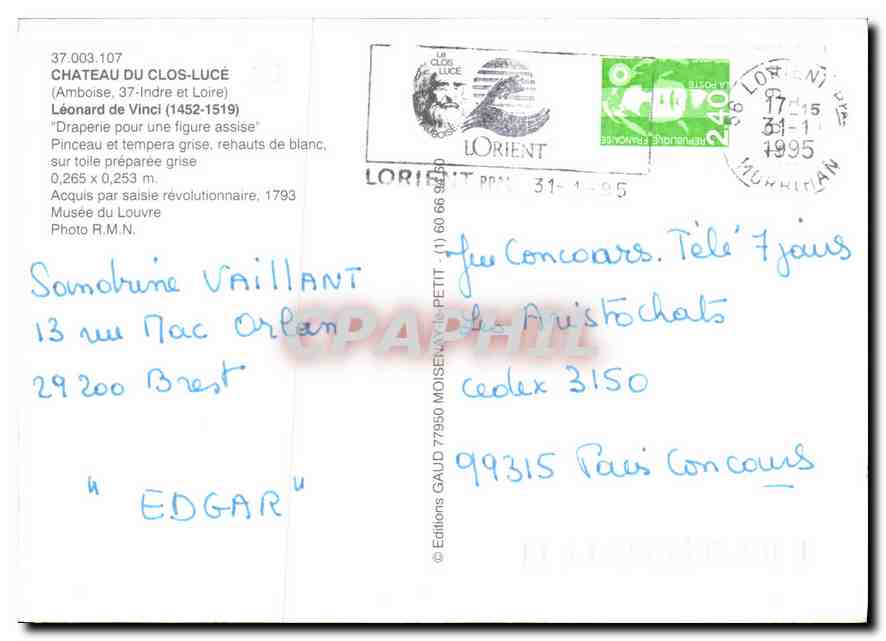 37.003.107
CHATEAU DU CLOS-LUCÉ
(Amboise, 37-Indre et Loire)
Léonard de Vinci (1452-1519)
"Draperie pour une figure assise"
Pinceau et tempera grise, rehauts de blanc,
sur toile préparée grise
0,265 x 0,253 m.
Acquis par saisie révolutionnaire, 1793
Musée du Louvre
Photo R.M.N.
Le
CLOS
LUCÉ
AMBOISE
LORIENT
LORIENT PPAL 31-1-95
2,40
LA POSTE
REPUBLIQUE FRANÇAISE
56 LORIENT
17H15
31-1
1995
MORBIHAN
Sandrine VAILLANT
13 rue Mac Orlan
29200 Brest
"EDGAR"
© Editions GAUD 77950 MOISENAY-le-PETIT - (1) 60 66 94 60
Jeu Concours. Télé 7 jours
Les Aristochats
cedex 3150
99315 Paris Concours
CPAPHIL